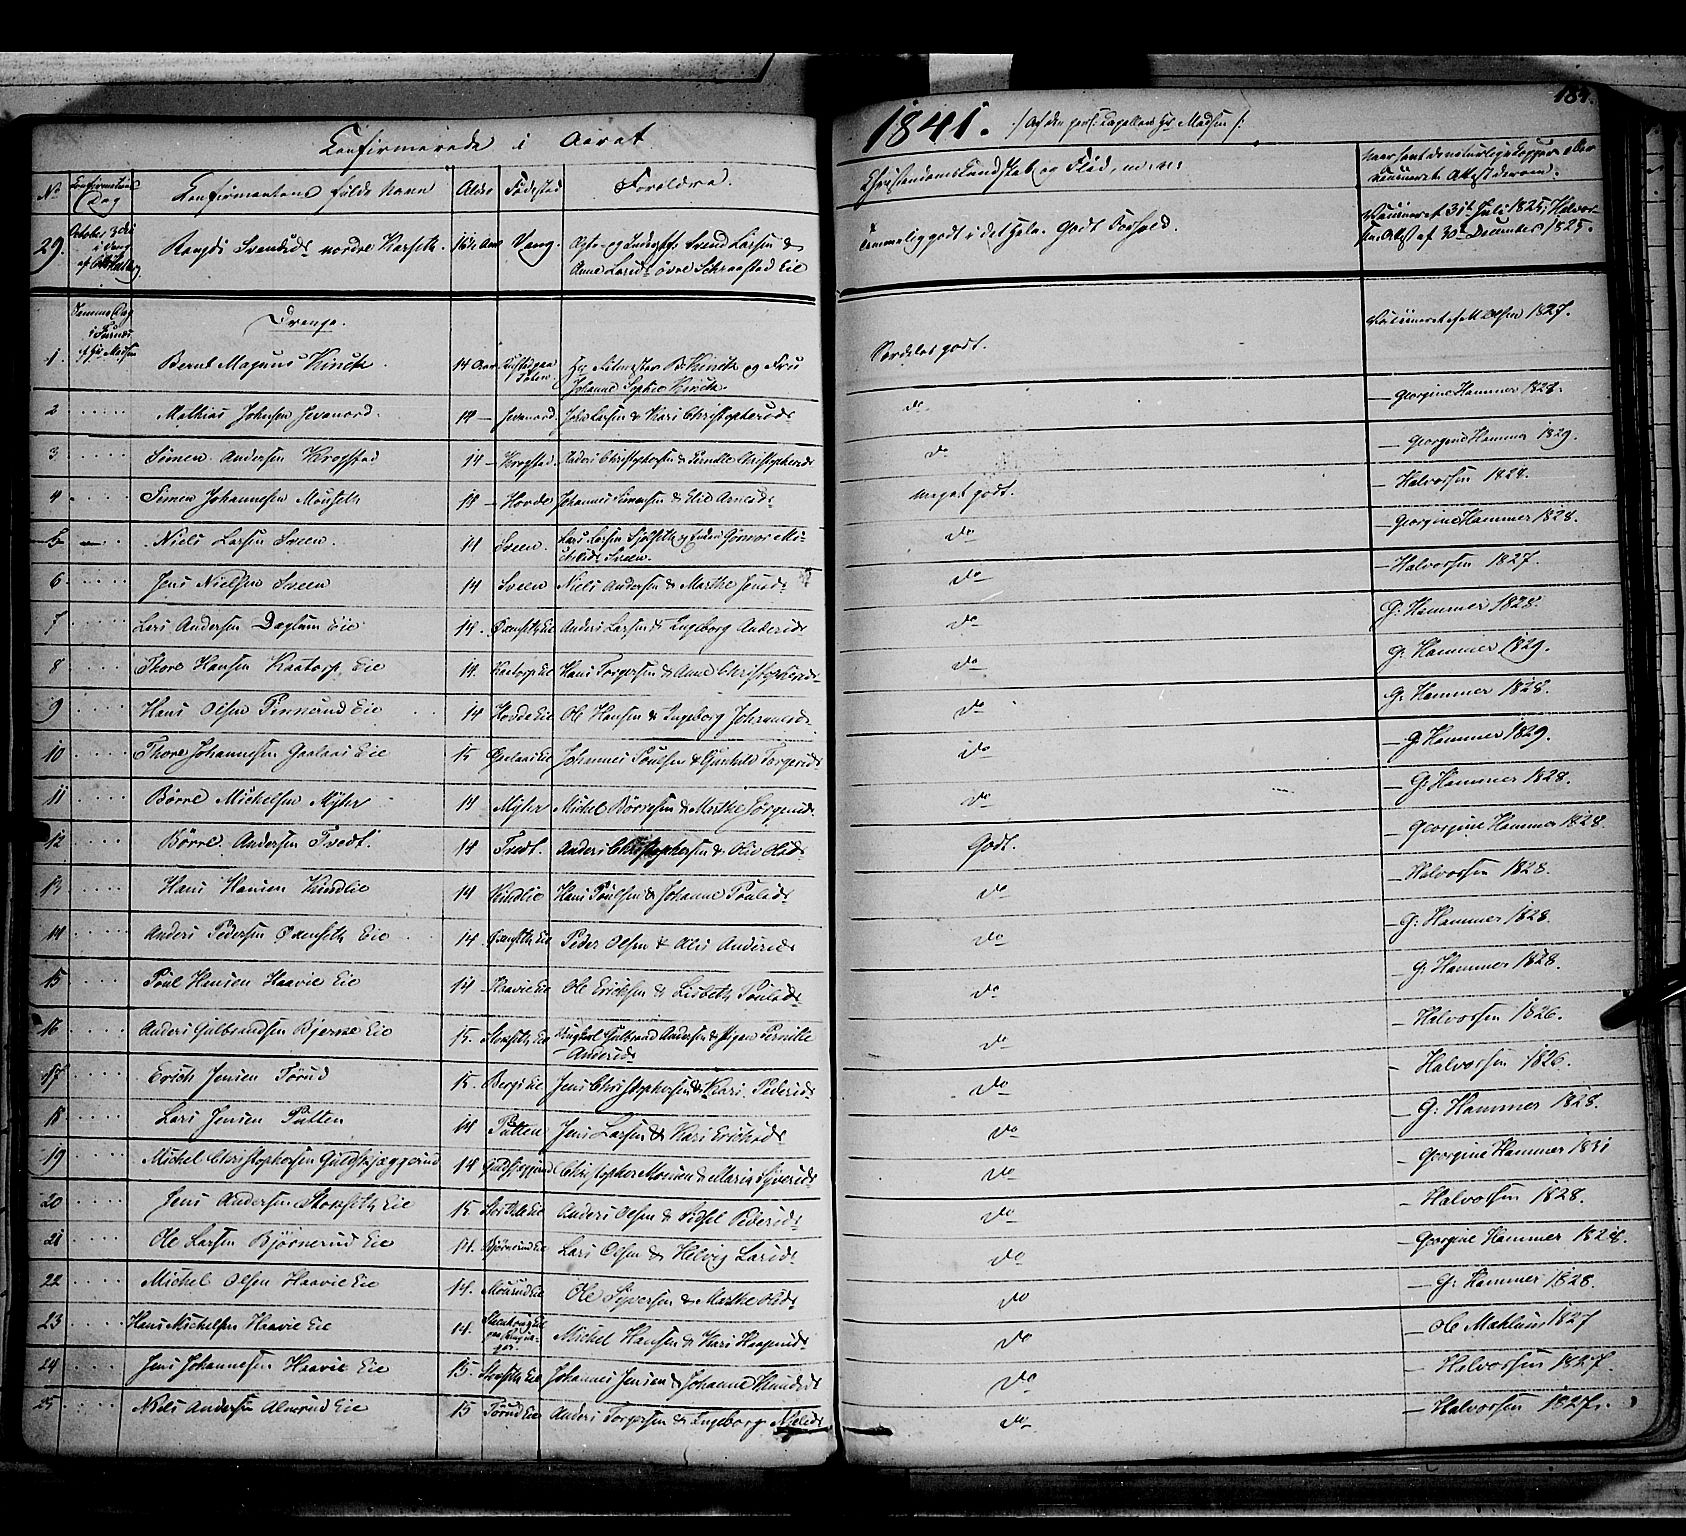 Confirmerede i Aaret 1841. /: Af den pers: Capellan Hr Madsen :/ 184.
No Confirmations Dag Confirmantens fulde Navn Alder Fødested Forældre. Christendoms Kundskab og Flid, m.m. Naar havt de naturlige Kopper eller vaccineret. Attest derom.
29. October 3die i Vang Svendsd: nordre 16½ Aar Vang. Svend Larsen & Temmelig godt i det Hele. Godt Forhold. Vaccineret 31te Juli 1825, Halvor-
Anne Larsd: øvre Eie sens Attest af 30te December 1825.
Samme Dag i Furnæs af Hr Madsen
Drenge.
1. Bernt Magnus Kinck 14 Aar Hr og Fru Johanne Sophie Kinck Særdeles godt. Vaccineret af Madsen 1827.
2 Mathias Johnsen Jevanord 14 — Jevanord John Larsen & Kari Christophersd: do — Georgine Hammer 1828.
3 Simen Andersen Krogstad 14 — Krogstad Anders Christophersen & Pernille Christophersd: do — Georgine Hammer 1829.
4 Simen Johannesen 14 — Hovde Johannes Simensen & Arnesd: meget godt. — Halvorsen 1828.
5 Niels Larsen Sveen 14 Sveen. Lars Larsen Sveen. do Georgine Hammer 1828.
6 Jens Nielsen Sveen 14 Sveen Niels Andersen & Marthe Jensd: do — Halvorsen 1827.
7 Lars Andersen Daglum Eie 14. Anders Larsen & Ingeborg Andersd: do G: Hammer 1828.
8 Thore Hansen Kaatorp Eie 14. Kaatorp Eie Hans Torgersen & Anne Christophersd: do G: Hammer 1829.
9 Hans Olsen Eie 14 Hovde Eie Ole Hansen & Ingeborg Johannesd: do G: Hammer 1828.
10 Thore Johannesen Gaalaas Eie 15 Gaalaas Eie Johannes Poulsen & Gunhild Torgersd: do — G Hammer 1829.
11 Børre Michelsen Myhr 14 — Myhr Michel Børresen & Marthe Jørgensd: do — G: Hammer 1828.
12 Børre Andersen Tvedt. 14 Tvedt. Anders Christophersen & Olie Olsd: Godt. — Georgine Hammer 1828.
13 Hans Hansen Kindlie 14 Kindlie Hans Poulsen & Johanne Poulsd: do — Halvorsen 1828.
14 Anders Pedersen Oxenseth Eie 14. Oxenseth Eie Peder Olsen & Andersd: do — G: Hammer 1828.
15 Poul Hansen Haavie Eie 14 — Haavie Eie Ole Ericksen & Lisbeth Poulsd: do — G: Hammer 1828.
16 Anders Gulbrandsen Bjerke Eie 15. Storseth Eie Gulbrand Andersen & Pernille Andersd: do — Halvorsen 1826.
17 Erich Jensen Torud 15. Berg Eie Jens Christophersen & Kari Pedersd: do — Halvorsen 1826.
18 Lars Jensen Putten 14 Putten Jens Larsen & Kari Ericksd: do — G: Hammer 1828.
19 Michel Christophersen Guldskjæggerud 14 Christopher Monsen & Maria Syversd: do — Georgine Hammer 1831
20 Jens Andersen Storseth Eie 15. Storseth Eie Anders Olsen & Sidsel Pedersd: do — Halvorsen 1828.
21 Ole Larsen Bjørnerud Eie 14. Bjørnerud Eie Lars Olsen & Helvig Larsd: do — Georgine Hammer 1828.
22 Michel Olsen Haavie Eie 14. Eie Ole Syversen & Marthe Olsd: do — G: Hammer 1828.
23 Hans Michelsen Haavie Eie 14. Michel Hansen & Kari do — Ole Mæhlum 1827
24 Jens Johannesen Haavie Eie 15. Storseth Eie Johannes Jensen & Johanne do — Halvorsen 1827.
25 Niels Andersen Almerud Eie 15 Torud Eie Anders Torgersen & Ingeborg Nielsd: do — Halvorsen 1827.